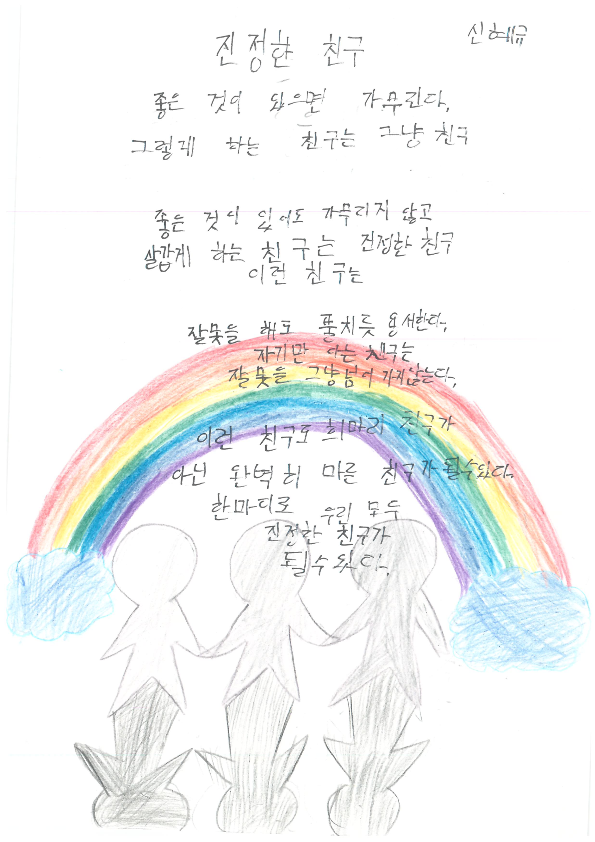 진정한 친구
신혜규
좋은 것이 있으면 가무린다,
그렇게 하는 친구는 그냥 친구
좋은 것이 있어도 가무리지 않고
살갑게 하는 친구는 진정한 친구
이런 친구는
잘못을 해도 풀치듯 용서한다,
자기만 아는 친구는
잘못을 그냥넘어 가지않는다,
이런 친구도 희마리 친구가
아닌 완벽히 마른 친구가 될수있다.
한마디로 우리 모두
진정한 친구가
될수 있다,